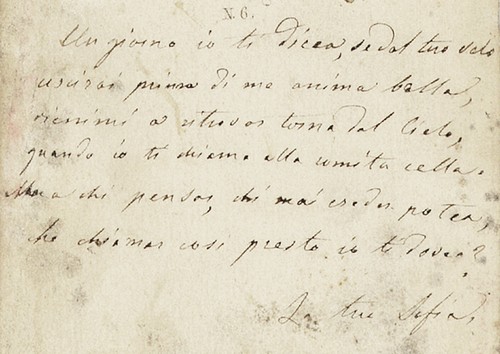 N. 6.
Un giorno io ti dicea, se dal tuo velo
uscirai prima di me anima bella,
vienimi a ritrovar torna dal Cielo,
quando io ti chiamo alla romita cella.
Ma a chi pensar, chi mai creder potea,
che chiamar così presto io ti dovea?
La tua Sofia,